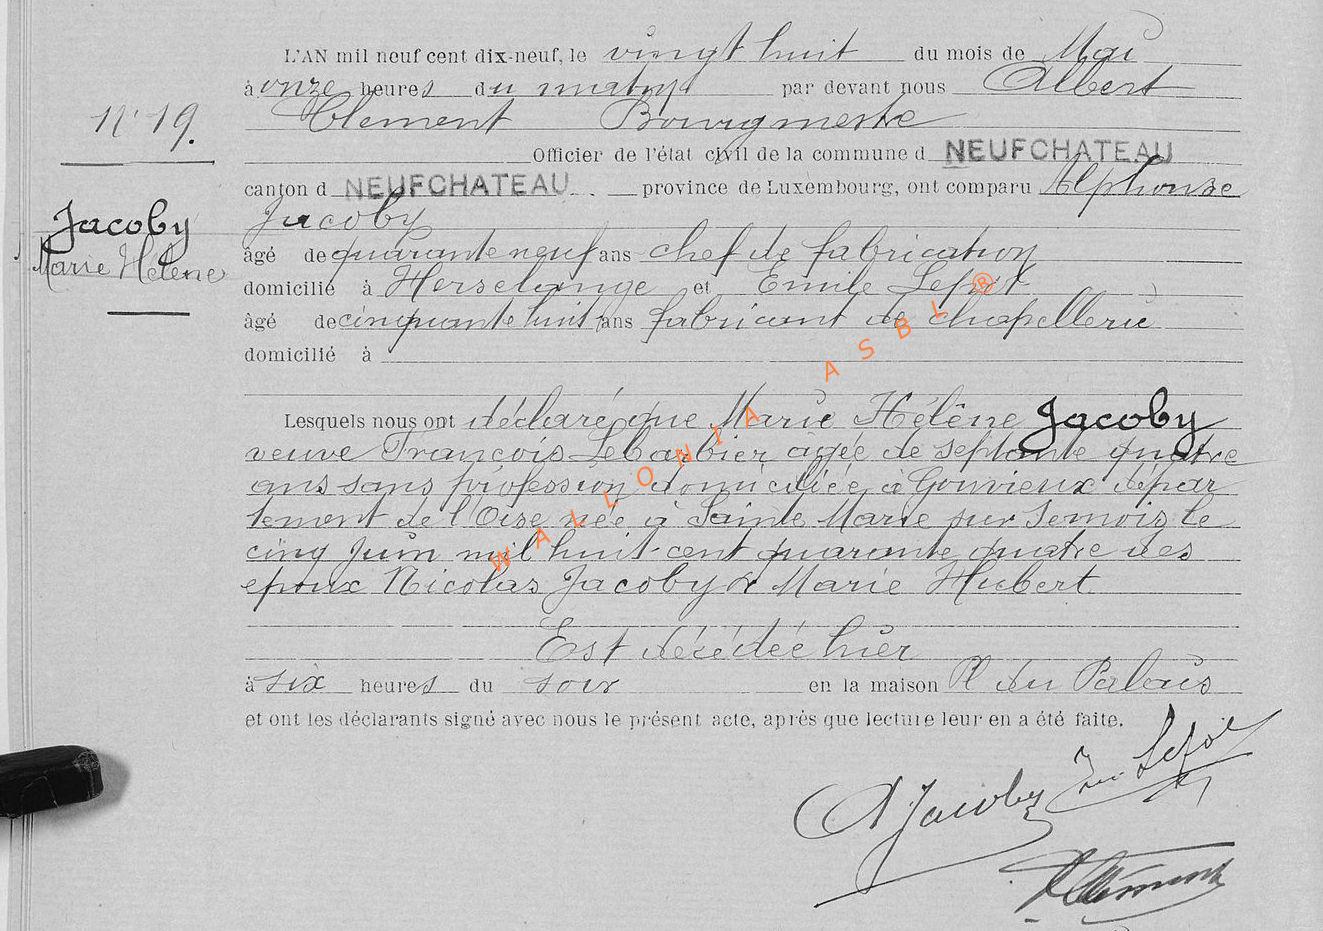 L'AN mil neuf cent dix-neuf, le vingt huit du mois de Mai
à onze heures du matin par devant nous Albert
N° 19.
Clement Bourgmestre
Officier de l'état civil de la commune d NEUFCHATEAU
canton d NEUFCHATEAU province de Luxembourg, ont comparu Alphonse
Jacoby
Jacoby
Marie Hélène
âgé de quarante neuf ans chef de fabrication
domicilié à Herserange et Emile
âgé de cinquante huit ans fabricant de chapellerie
domicilié à
Lesquels nous ont déclaré que Marie Hélène Jacoby
veuve François Lebarbier agée de septante quatre
ans sans profession domiciliée à Gouvieux dépar
tement de l'Oise née à Sainte Marie sur Semois le
cinq Juin mil huit-cent quarante quatre des
epoux Nicolas Jacoby & Marie Hubert
Est décédée hier
à six heures du soir en la maison Pl du Palais
et ont les déclarants signé avec nous le présent acte, après que lecture leur en a été faite.
A Jacoby
AClément
WALLONIA ASBL ®